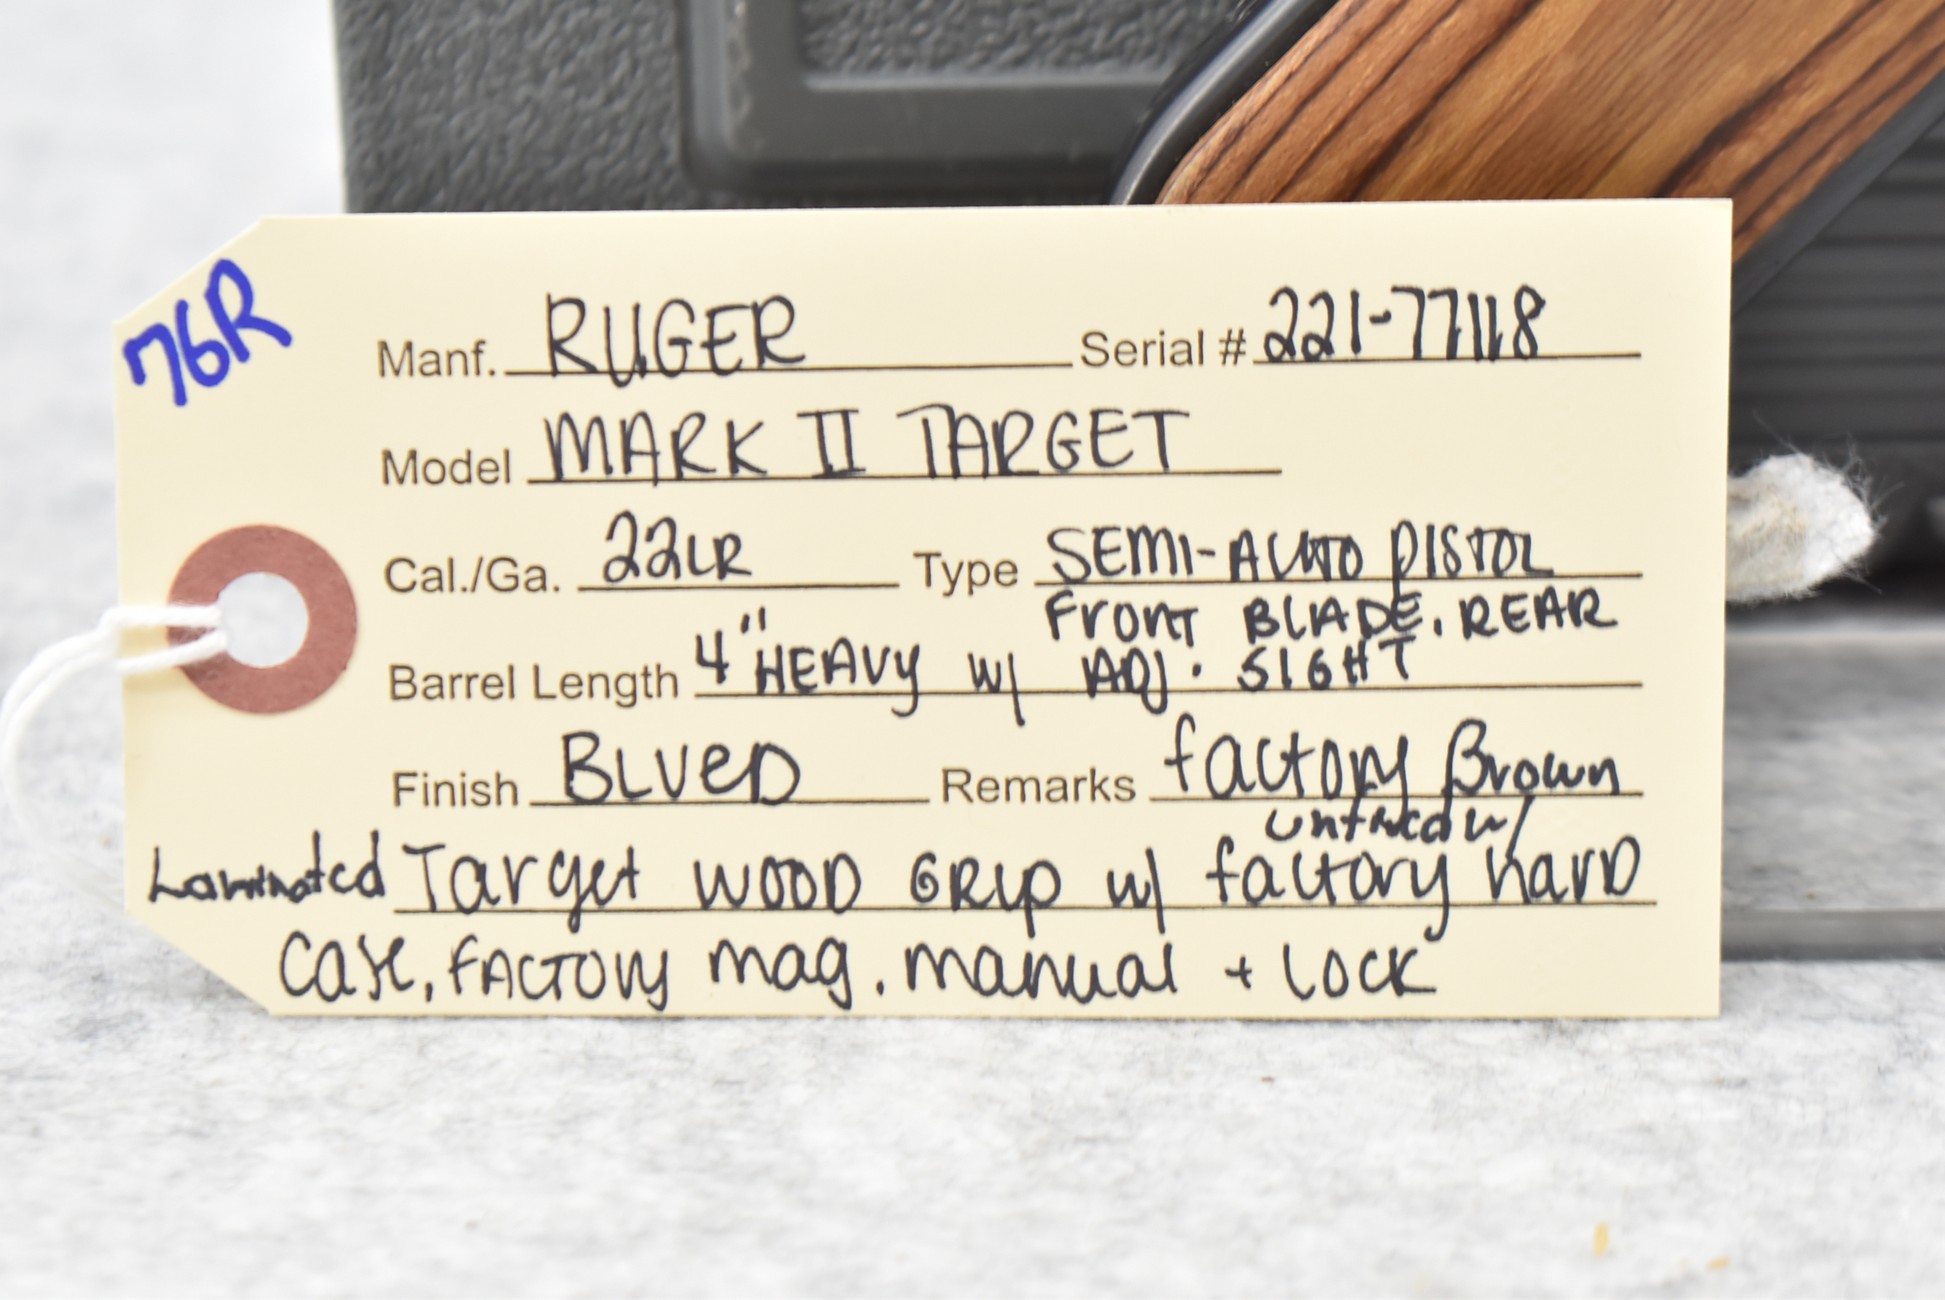 76R
Manf. RUGER Serial # 221-77118
Model MARK II TARGET
Cal./Ga. 22LR Type SEMI-AUTO PISTOL
FRONT BLADE. REAR
Barrel Length 4" HEAVY w/ ADJ. SIGHT
Finish BLUED Remarks factory Brown
untried w/
Laminated Target WOOD GRIP w/ factory HARD
CASE, FACTORY mag. manual + LOCK